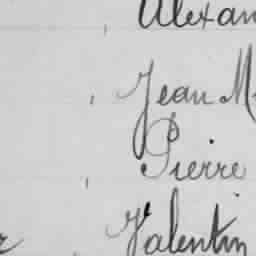 Alexan
Jean M
Pierre
Valentin